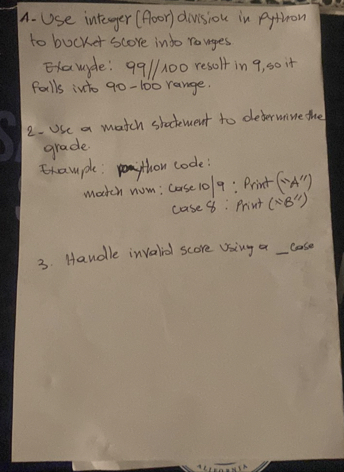 1- Use integer (floor) division in Python
to bucket score into ranges.
Example: 99//100 result in 9, so it
falls into 90-100 range.
2- Use a match statement to determine the
grade
Example: python code:
match num: case 10|9 : Print ("A")
case 8 : Print ("B")
3. Handle invalid score using a _ case